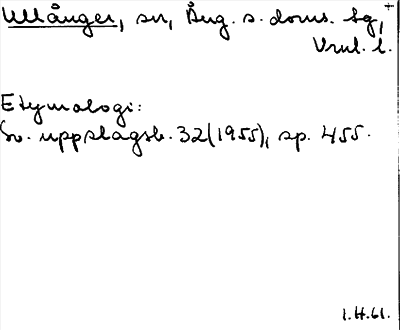 Ullånger, sn, Ång. s. doms. lg,
Vnl. l.
Etymologi:
Sv. uppslagsb. 32(1955), sp. 455.
1.H.61.